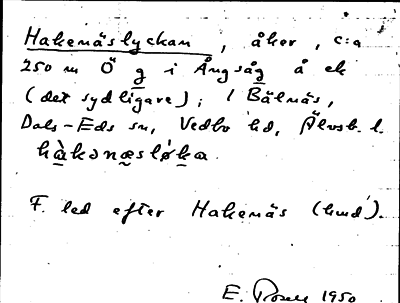 Hakenäslyckan, åker, c:a
250 m Ö g i Ångsåg å ek
(det sydligare); i Bälnäs,
Dals-Eds sn, Vedbo hd, Älvsb. l.
hàkənæsløka.
F. led efter Hakenäs (hmd).
E. 1950